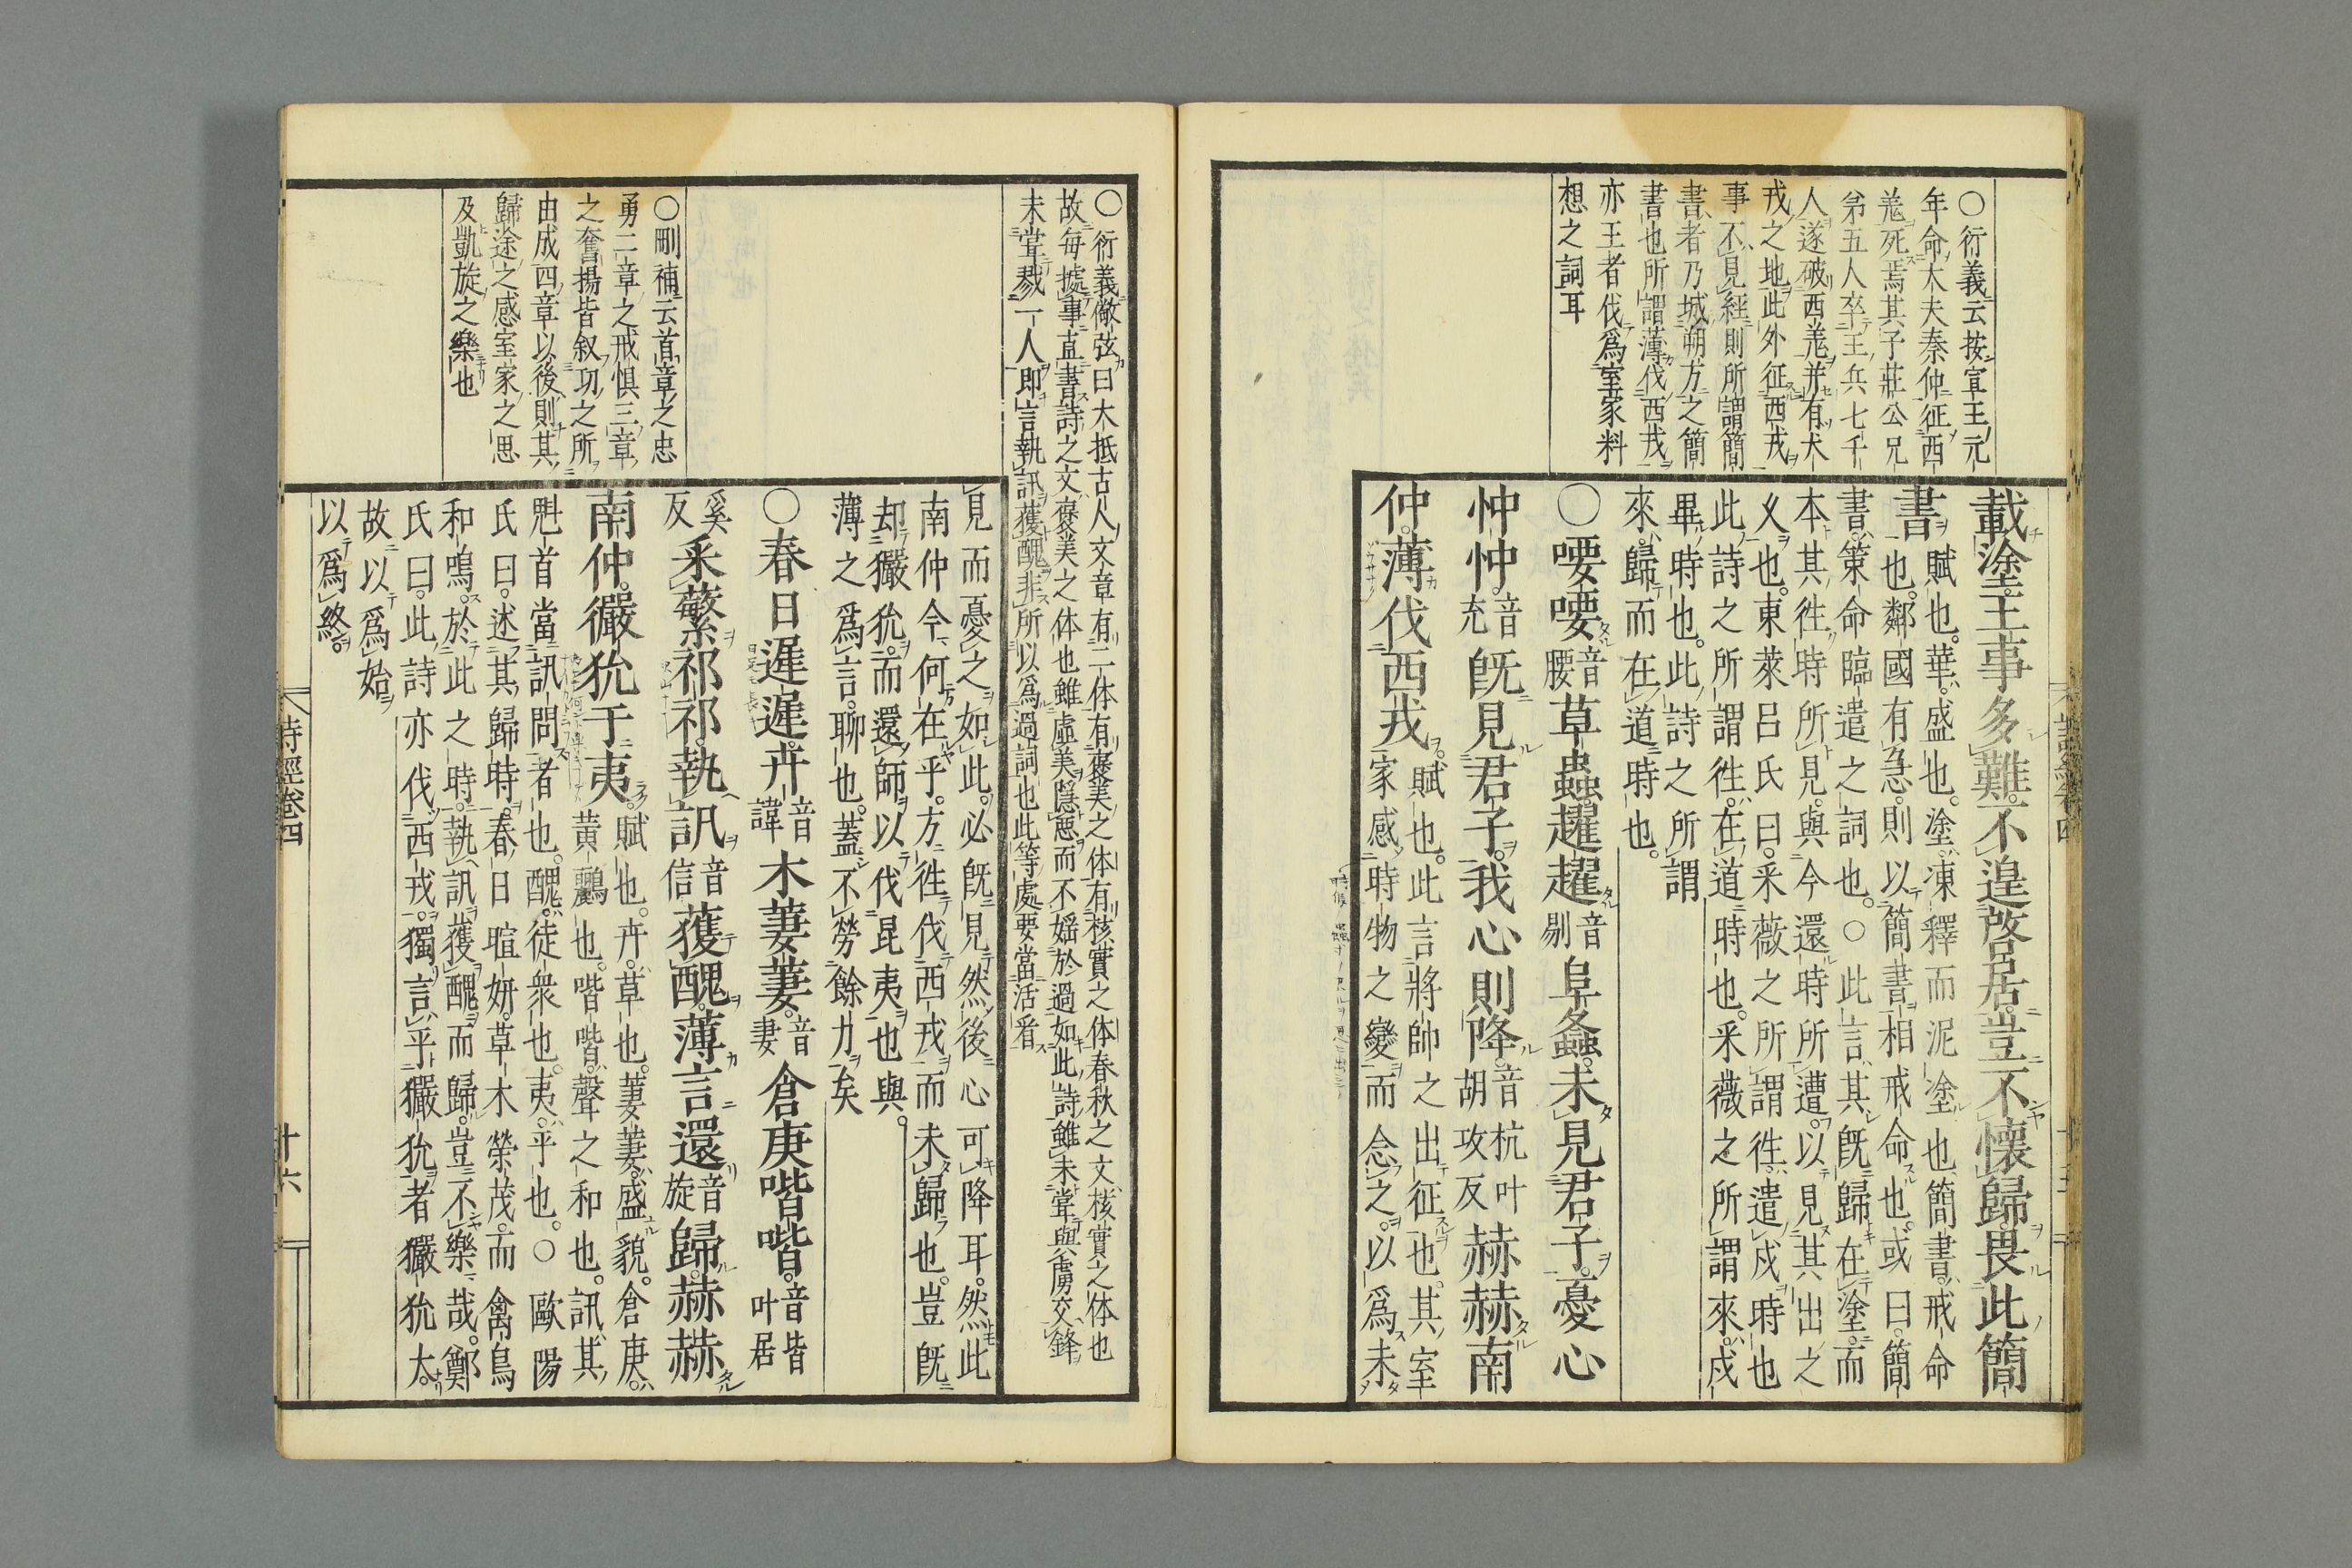 ○衍義云按宣王元
年命大夫秦仲征西
羗死焉其子莊公兄
弟五人卒王兵七千
人遂破西羗并有犬
戎之地此外征西戎
事不見經則所謂簡
書者乃城朔方之簡
書也所謂薄伐西戎
亦王者伐爲室家料
想之詞耳
載塗王事多難不遑啓居豈不懷歸畏此簡
書
賦也華盛也塗凍釋而泥塗也簡書戒命
也鄰國有急則以簡書相戒命也或曰簡
書策命臨遣之詞也○此言其既歸在塗而
本其徃時所見與今還時所遭以見其出之
乂也東萊呂氏曰采薇之所謂徃遣戍時也
此詩之所謂徃在道時也采薇之所謂來戍
畢時也此詩之所謂
來歸而在道時也
○喓喓音腰草蟲趯趯音剔阜螽未見君子憂心
忡忡音充既見君子我心則降音杭叶胡攻反赫赫南
仲薄伐西戎
賦也此言將帥之出征也其室
家感時物之變而念之以爲未
○衍義儆弦曰大抵古人文章有二体有褒美之体有核實之体春秋之文核實之体也
故毎據事直書詩之文褒美之体也雖虛美隱惡而不嫌於過如此詩雖未甞與虜交鋒
未甞戮一人即言執訊獲醜非所以爲過詞也此等處要當活看
見而憂之如此必既見然後心可降耳然此
南仲今何在乎方徃伐西戎而未歸也豈既
却玁狁而還師以伐昆夷也與
薄之爲言聊也蓋不勞餘力矣
○春日遲遲卉音諱木萋萋音妻倉庚喈喈音皆叶居
奚反采蘩祁祁執訊音信獲醜薄言還音旋歸赫赫
南仲玁狁于夷
賦也卉草也萋萋盛貌倉庚
黄鸝也喈喈聲之和也訊其
魁首當訊問者也醜徒衆也夷平也○歐陽
氏曰述其歸時春日暄妍草木榮茂而禽鳥
和鳴於此之時執訊獲醜而歸豈不樂哉鄭
氏曰此詩亦伐西戎獨言平玁狁者玁狁大
故以爲始
以爲終
○刪補云首章之忠
勇二章之戒惧三章
之奮揚皆叙功之所
由成四章以後則其
歸途之感室家之思
及凱旋之樂也
詩經卷四
十六